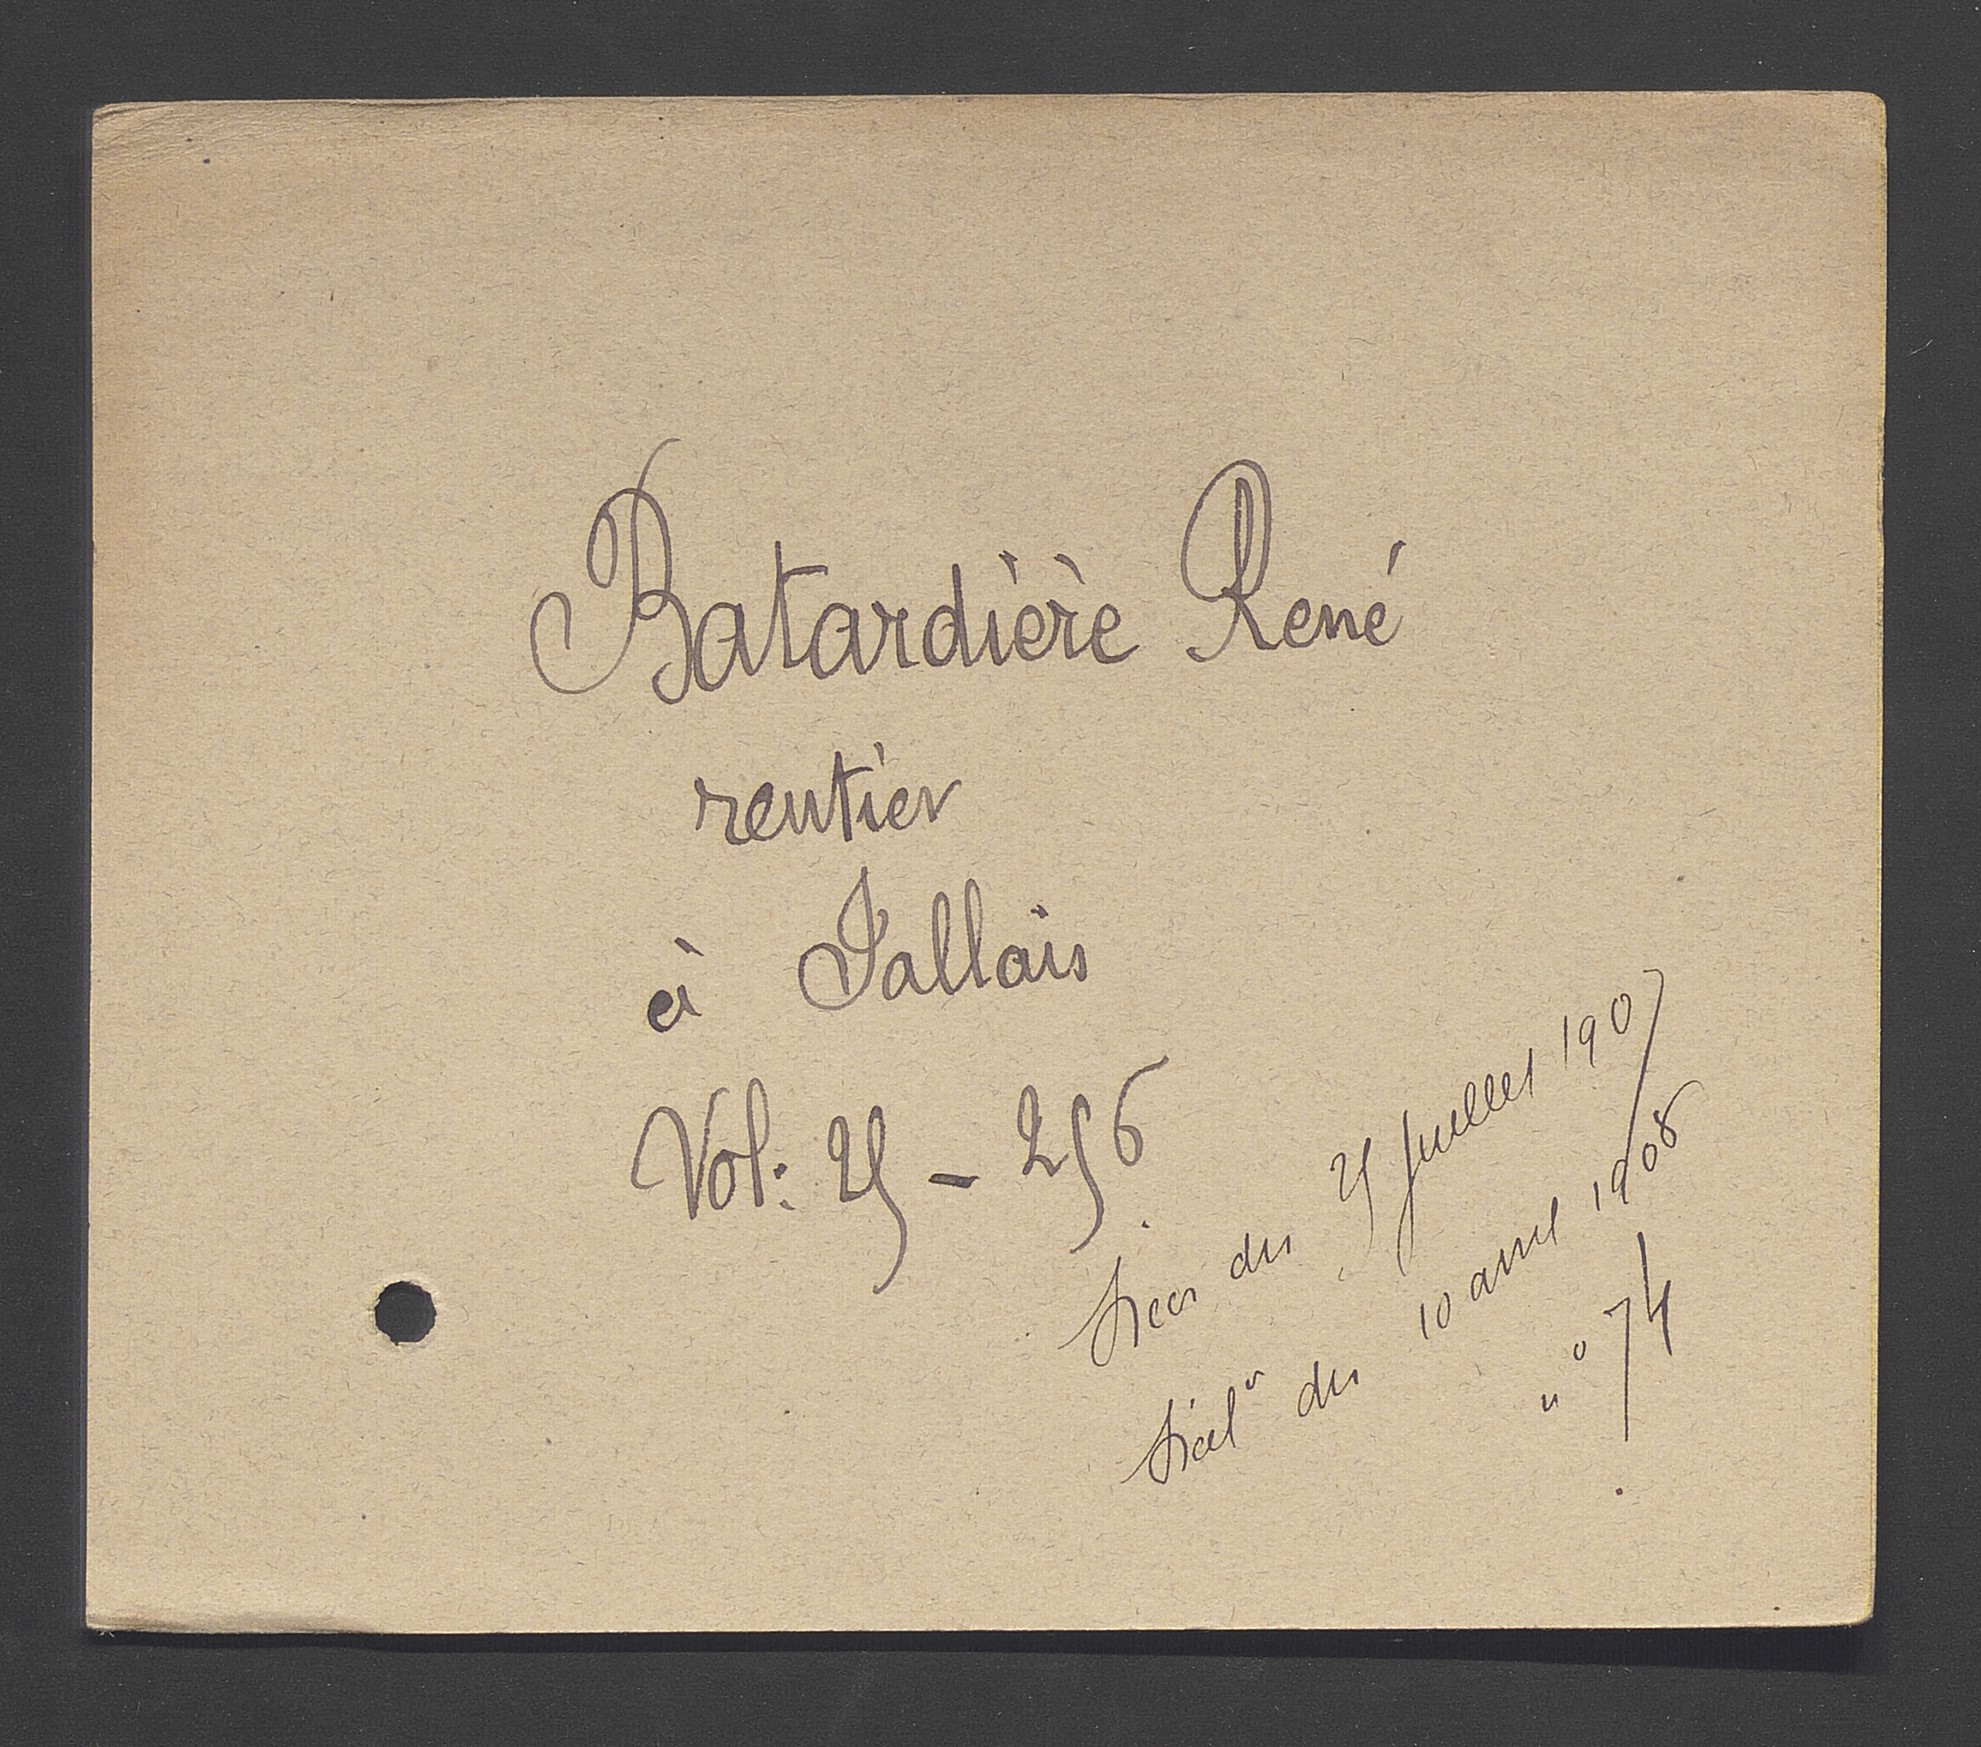 Batardière René
rentier
à Jallais
Vol: 25 - 256
Décès du 25 Juillet 1907
Décl^n du 10 avril 1908
n° 74